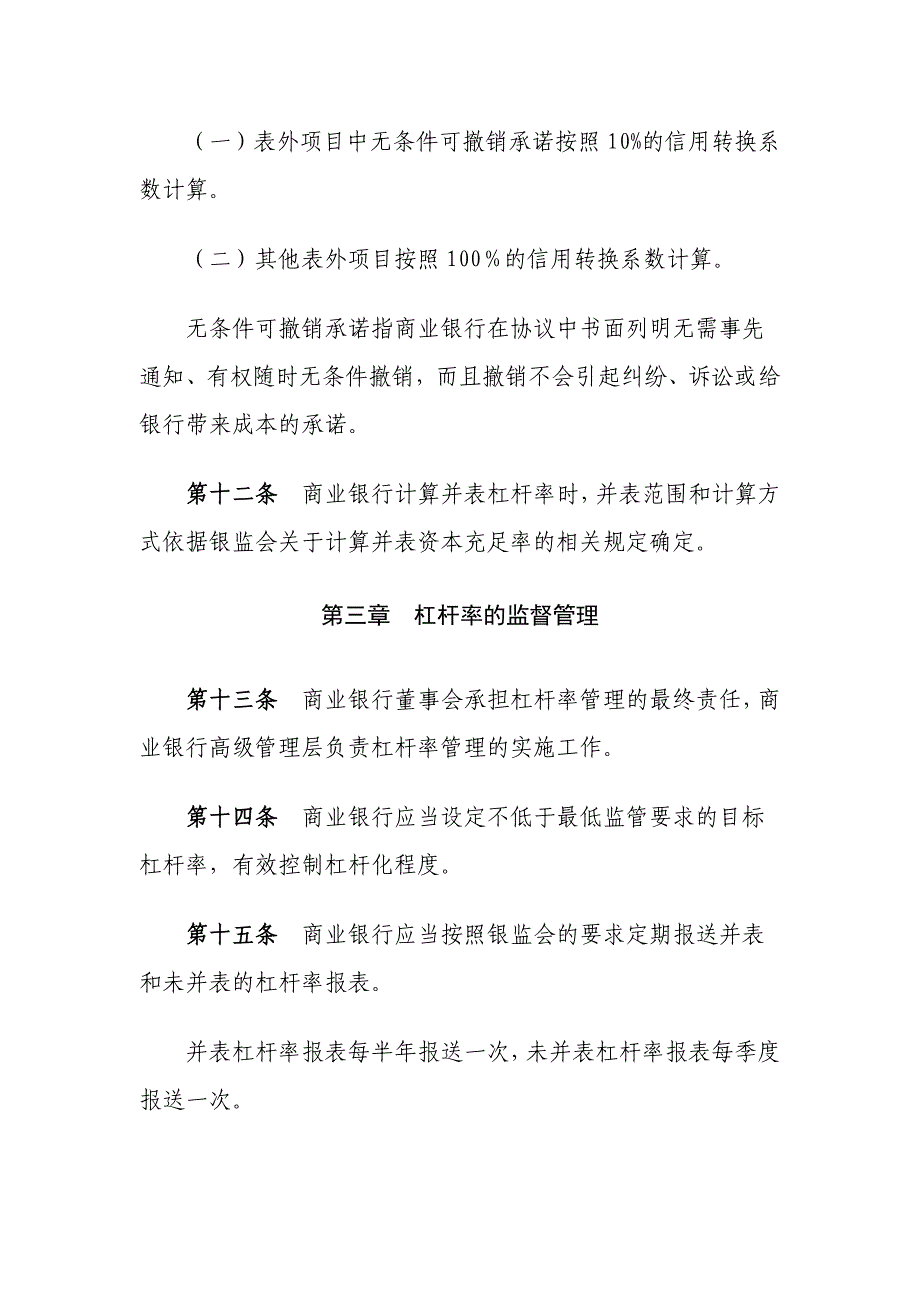 （一）表外项目中无条件可撤销承诺按照 10%的信用转换系
数计算。
（二）其他表外项目按照 100%的信用转换系数计算。
无条件可撤销承诺指商业银行在协议中书面列明无需事先
通知、有权随时无条件撤销，而且撤销不会引起纠纷、诉讼或给
银行带来成本的承诺。
第十二条　商业银行计算并表杠杆率时，并表范围和计算方
式依据银监会关于计算并表资本充足率的相关规定确定。
第三章　杠杆率的监督管理
第十三条　商业银行董事会承担杠杆率管理的最终责任，商
业银行高级管理层负责杠杆率管理的实施工作。
第十四条　商业银行应当设定不低于最低监管要求的目标
杠杆率，有效控制杠杆化程度。
第十五条　商业银行应当按照银监会的要求定期报送并表
和未并表的杠杆率报表。
并表杠杆率报表每半年报送一次，未并表杠杆率报表每季度
报送一次。